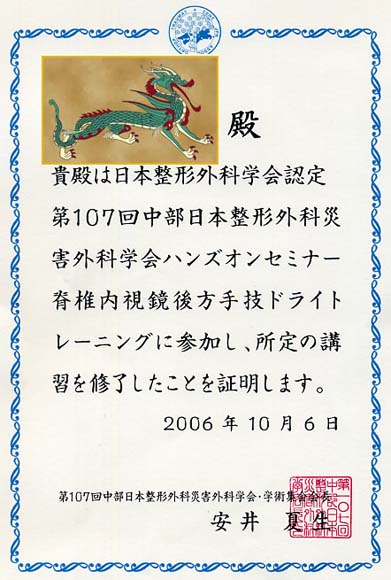 殿
貴殿は日本整形外科学会認定
第107回中部日本整形外科災
害外科学会ハンズオンセミナー
脊椎内視鏡後方手技ドライト
レーニングに参加し、所定の講
習を修了したことを証明します。
2006年10月6日
第107回中部日本整形外科災害外科学会・学術集会会長
安井 夏生